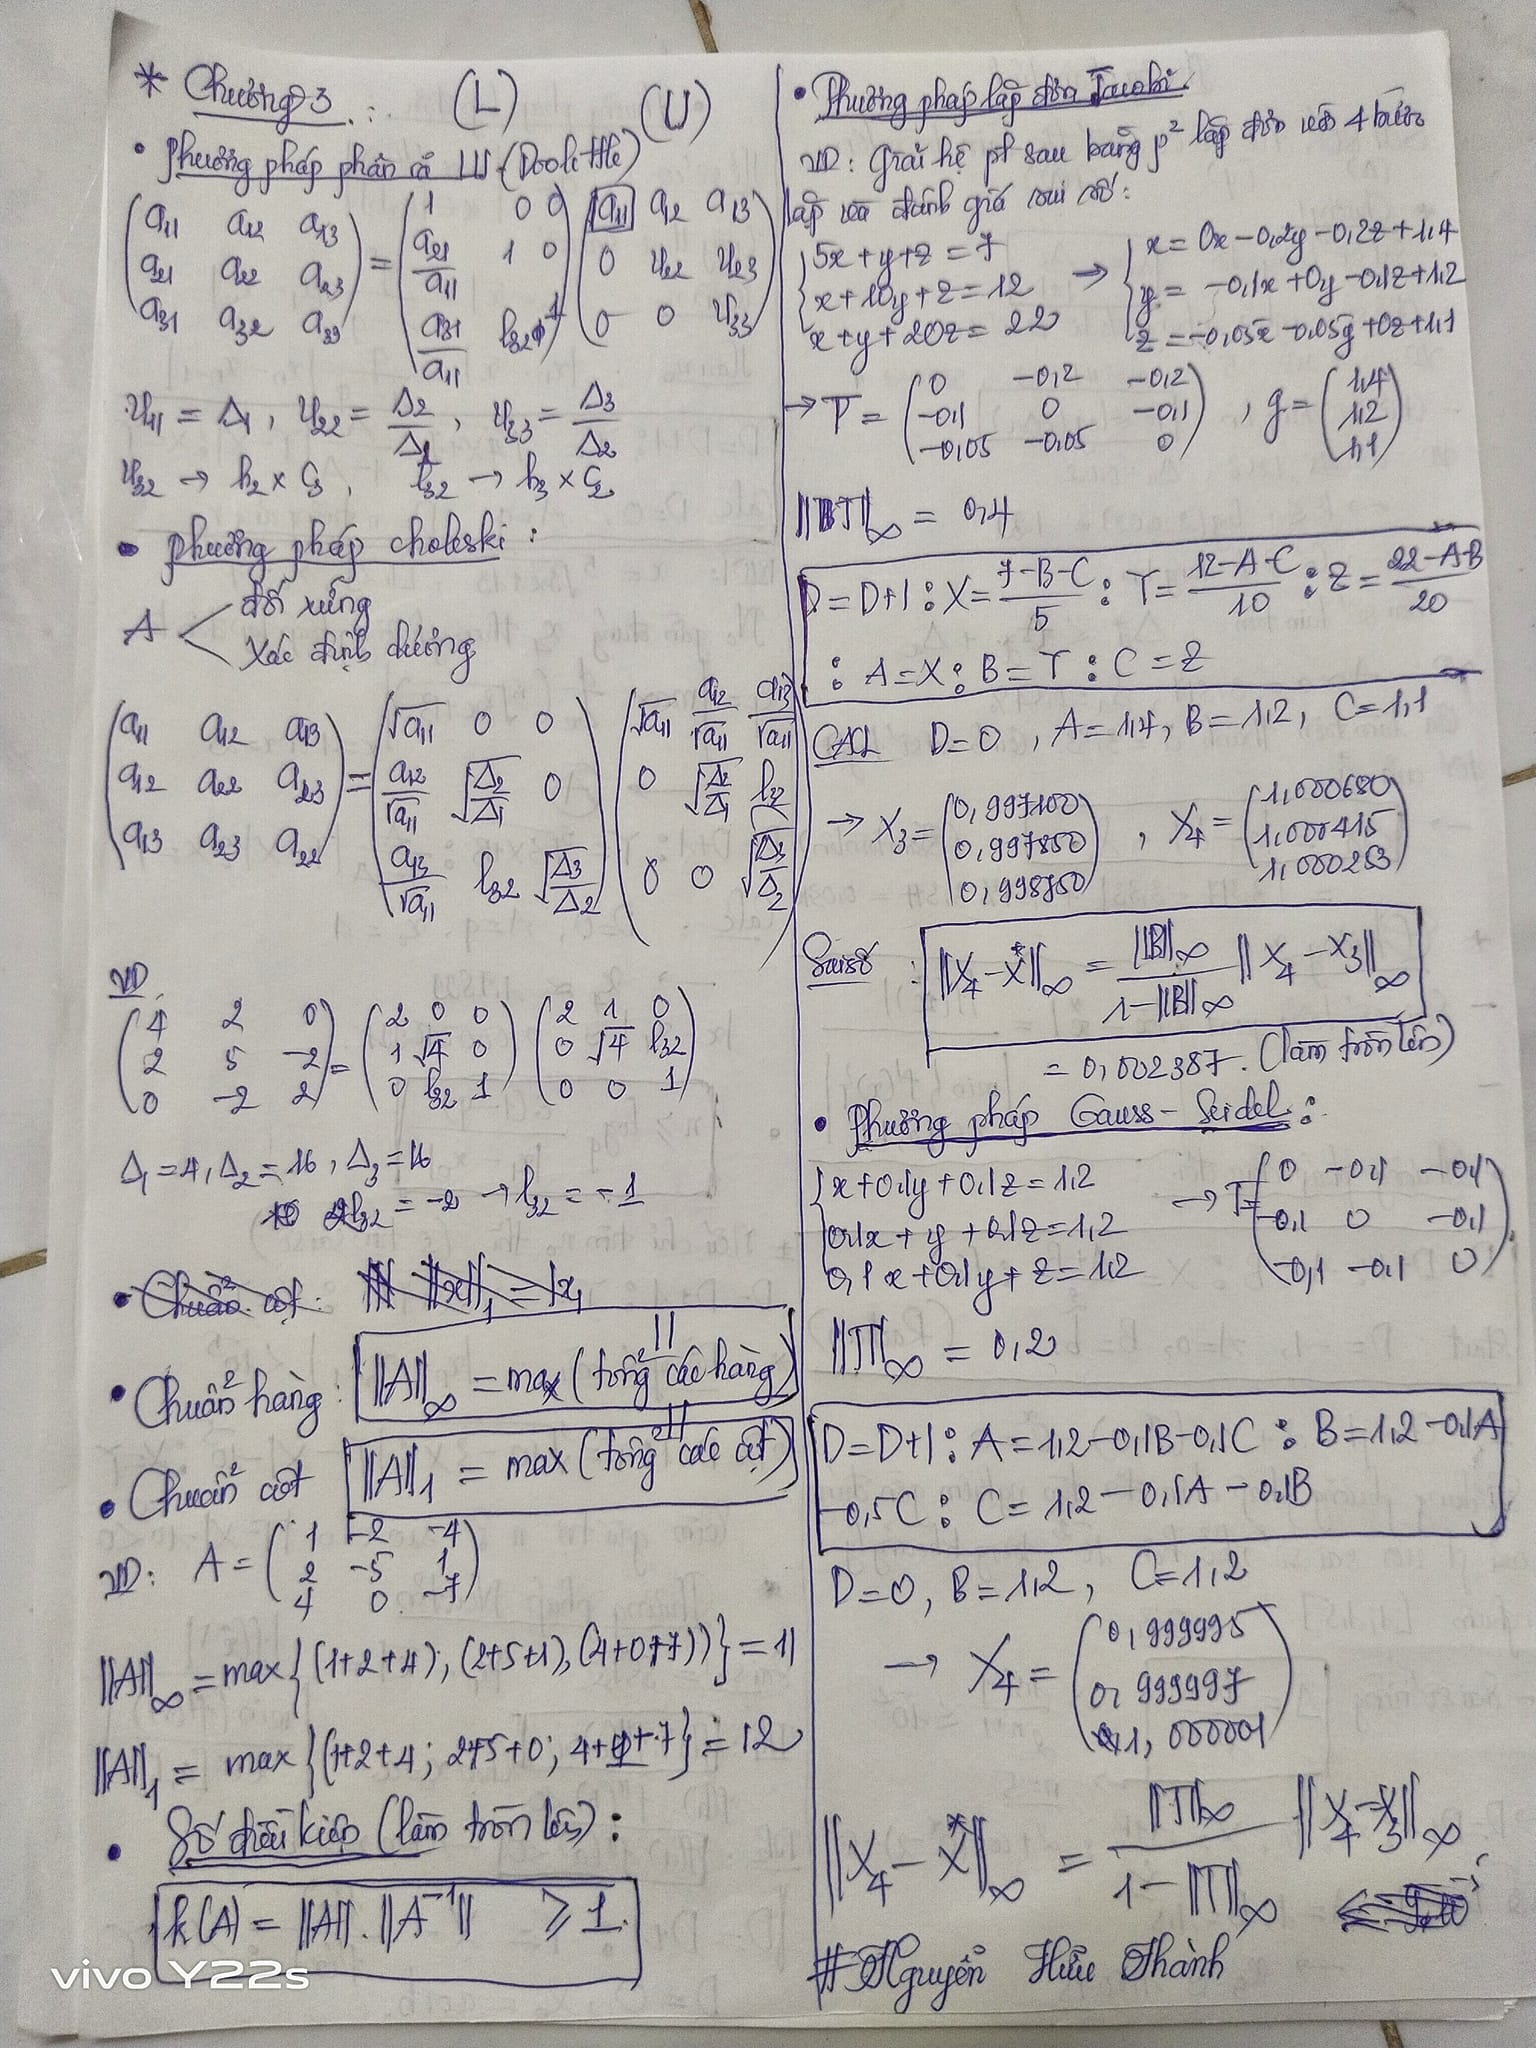 * Chương 3 : (L) (U)
• Phương pháp phân rã LU (Doolittle)
(a11 a12 a13; a21 a22 a23; a31 a32 a33) = (1 0 0; a21/a11 1 0; a31/a11 l32 1) (a11 a12 a13; 0 u22 u23; 0 0 u33)
u11 = Δ1, u22 = Δ2/Δ1, u33 = Δ3/Δ2
u32 → h2 x C3, l32 → h3 x C2
• phương pháp choleski :
A < đối xứng
Xác định dương
(a11 a12 a13; a12 a22 a23; a13 a23 a22) = (√a11 0 0; a12/√a11 √(Δ2/Δ1) 0; a13/√a11 l32 √(Δ3/Δ2)) (√a11 a12/√a11 a13/√a11; 0 √(Δ2/Δ1) l32; 0 0 √(Δ3/Δ2))
VD
(4 2 0; 2 5 -2; 0 -2 2) = (2 0 0; 1 √4 0; 0 l32 1) (2 1 0; 0 √4 l32; 0 0 1)
Δ1 = 4, Δ2 = 16, Δ3 = 16
2l32 = -2 → l32 = -1
• Chuẩn cột: ||x||1 = |x1
• Chuẩn hàng: ||A||∞ = max (|tổng| các hàng)
• Chuẩn cột ||A||1 = max (|tổng| các cột)
VD: A = (1 -2 -4; 2 -5 1; 4 0 -7)
||A||∞ = max{(1+2+4); (2+5+1), (4+0+7))} = 11
||A||1 = max {(1+2+4; 2+5+0; 4+1+7} = 12
• Số điều kiện (làm tròn lên) :
k(A) = ||A||.||A⁻¹|| ≥ 1.
• Phương pháp lặp đơn Jacobi
VD: Giải hệ pt sau bằng p² lặp đơn với 4 bước
lặp và đánh giá sai số:
{5x+y+z = 7; x+10y+z = 12; x+y+20z = 22 → {x = 0x-0,2y-0,2z+1,4; y = -0,1x+0y-0,1z+1,2; z = -0,05x-0,05y+0z+1,1
→ T = (0 -0,2 -0,2; -0,1 0 -0,1; -0,05 -0,05 0), g = (1,4; 1,2; 1,1)
||T||∞ = 0,4
D = D+1 : X = (7-B-C)/5 : Y = (12-A-C)/10 : Z = (22-A-B)/20
: A = X : B = Y : C = Z
CALC D = 0, A = 1,4, B = 1,2, C = 1,1
→ X3 = (0,997100; 0,997850; 0,998750), X4 = (1,000680; 1,000415; 1,000253)
Sai số : ||X4 - X*||∞ = ||B||∞/(1-||B||∞) ||X4 - X3||∞
= 0,002387. (làm tròn lên)
• Phương pháp Gauss-Seidel :
{x+0,1y+0,1z = 1,2; 0,1x+y+0,1z = 1,2; 0,1x+0,1y+z = 1,2 → T = (0 -0,1 -0,1; -0,1 0 -0,1; -0,1 -0,1 0)
||T||∞ = 0,2
D = D+1 : A = 1,2-0,1B-0,1C : B = 1,2-0,1A
-0,5C : C = 1,2-0,1A-0,1B
D = 0, B = 1,2, C = 1,2
→ X4 = (0,999995; 0,999997; 1,000001)
||X4 - X*||∞ = ||T||∞/(1-||T||∞) ||X4 - X3||∞
# Nguyễn Hữu Thành
vivo Y22s